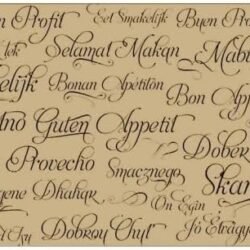 n Profit
Eet Smakelijk
Buen Pro
lek
Selamat Makan
Mabu
elijk
Bonan Apetiton
Bon App
Guten Appetit
Dober
Provecho
Smacznego
Skan
gene Dhahar
On Egin
Dobrou Chuť
Jó Étvágy